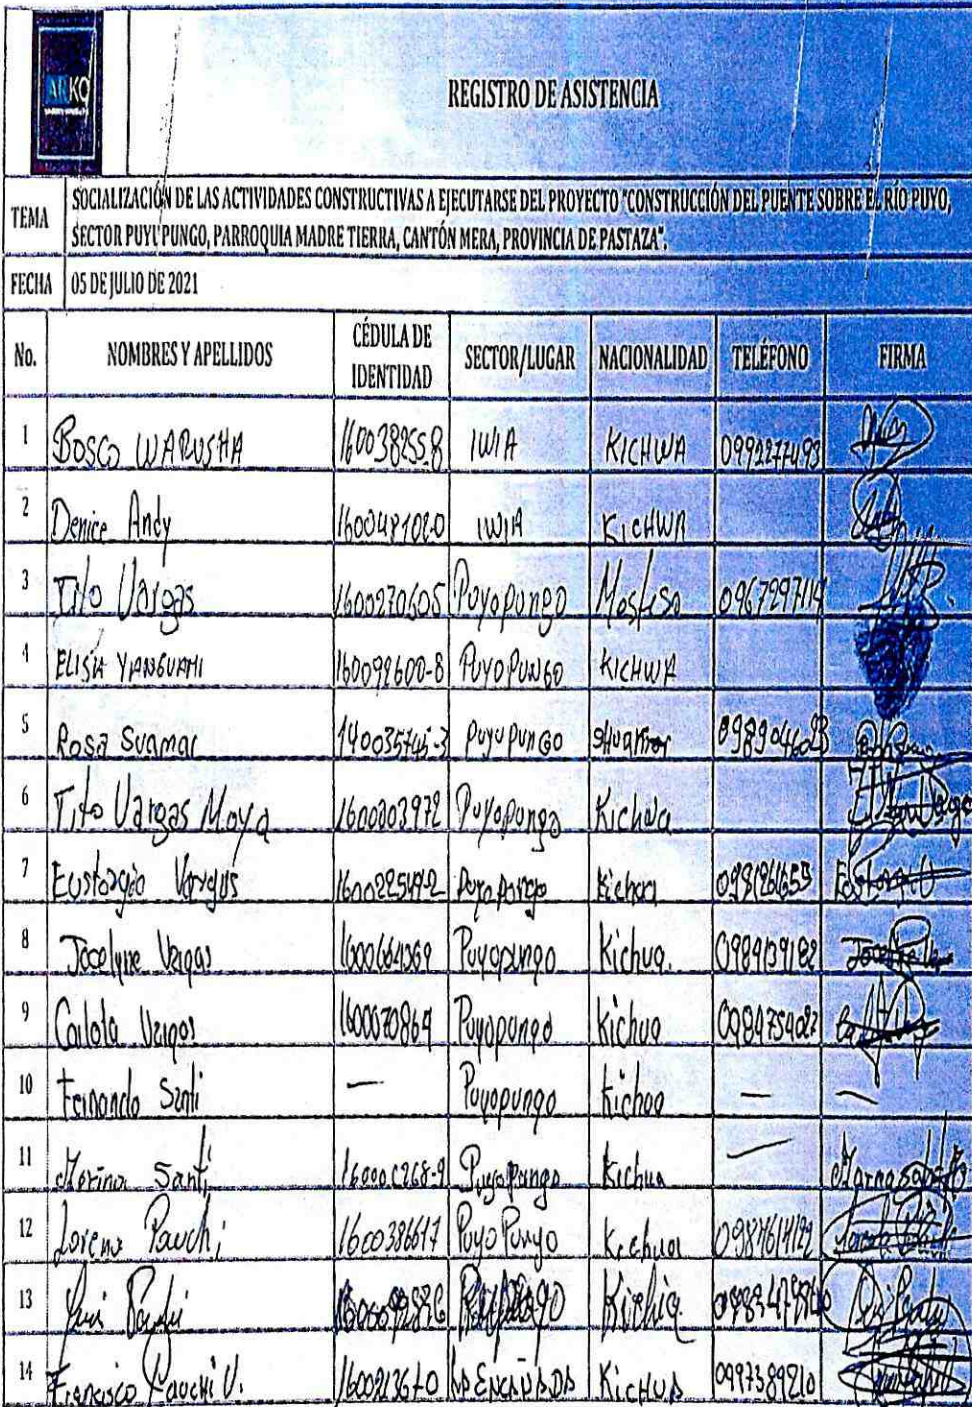 ARKO
REGISTRO DE ASISTENCIA
TEMA SOCIALIZACIÓN DE LAS ACTIVIDADES CONSTRUCTIVAS A EJECUTARSE DEL PROYECTO "CONSTRUCCIÓN DEL PUENTE SOBRE EL RÍO PUYO,
SECTOR PUYU PUNGO, PARROQUIA MADRE TIERRA, CANTÓN MERA, PROVINCIA DE PASTAZA".
FECHA 05 DE JULIO DE 2021
No. NOMBRES Y APELLIDOS CÉDULA DE IDENTIDAD SECTOR/LUGAR NACIONALIDAD TELÉFONO FIRMA
1 BOSCO WARUSHA 160038255-8 IWIA KICHWA 0992277493
2 Denice Andy IWIA KICHWA
3 Tito Vargas 1600270605 Puyopungo Mestiso
4 ELISA YIANGUAMI 160099600-8 PUYO PUNGO KICHWA
5 Rosa Suamar 140035745-3 puyu punGo
6 Tito Vargas Moya 1600003972 Puyopungo Kichwa
7 Eustorgio Vargas Puyo pongo Kichwa
8 Jocelyne Vargas Puyopungo Kichua.
9 Carlota Vargas 1600070864 Puyopungo Kichua 0984754027
10 Fernando Santi — Puyopungo Kichua — —
11 Santi Puyopungo Kichua —
12 Lorena Pauchi 1600386617 Puyo Pungo Kichua
13 Luis
14 Francisco Pauchi V. 160021367-0 LA ENCAÑADA KICHUA 0997389210